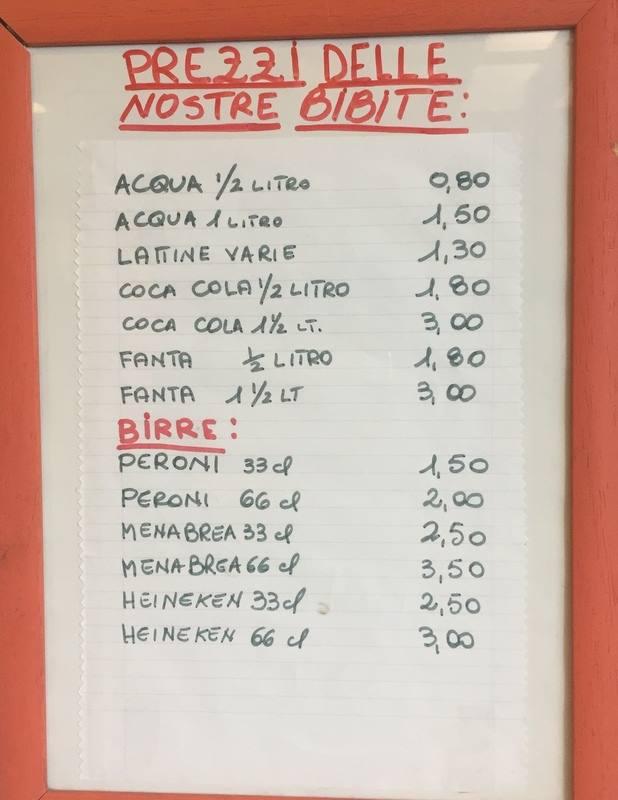 PREZZI DELLE
NOSTRE BIBITE:
ACQUA 1/2 LITRO 0,80
ACQUA 1 LITRO 1,50
LATTINE VARIE 1,30
COCA COLA 1/2 LITRO 1,80
COCA COLA 1 1/2 LT. 3,00
FANTA 1/2 LITRO 1,80
FANTA 1 1/2 LT 3,00
BIRRE:
PERONI 33 cl 1,50
PERONI 66 cl 2,00
MENABREA 33 cl 2,50
MENABREA 66 cl 3,50
HEINEKEN 33 cl 2,50
HEINEKEN 66 cl 3,00